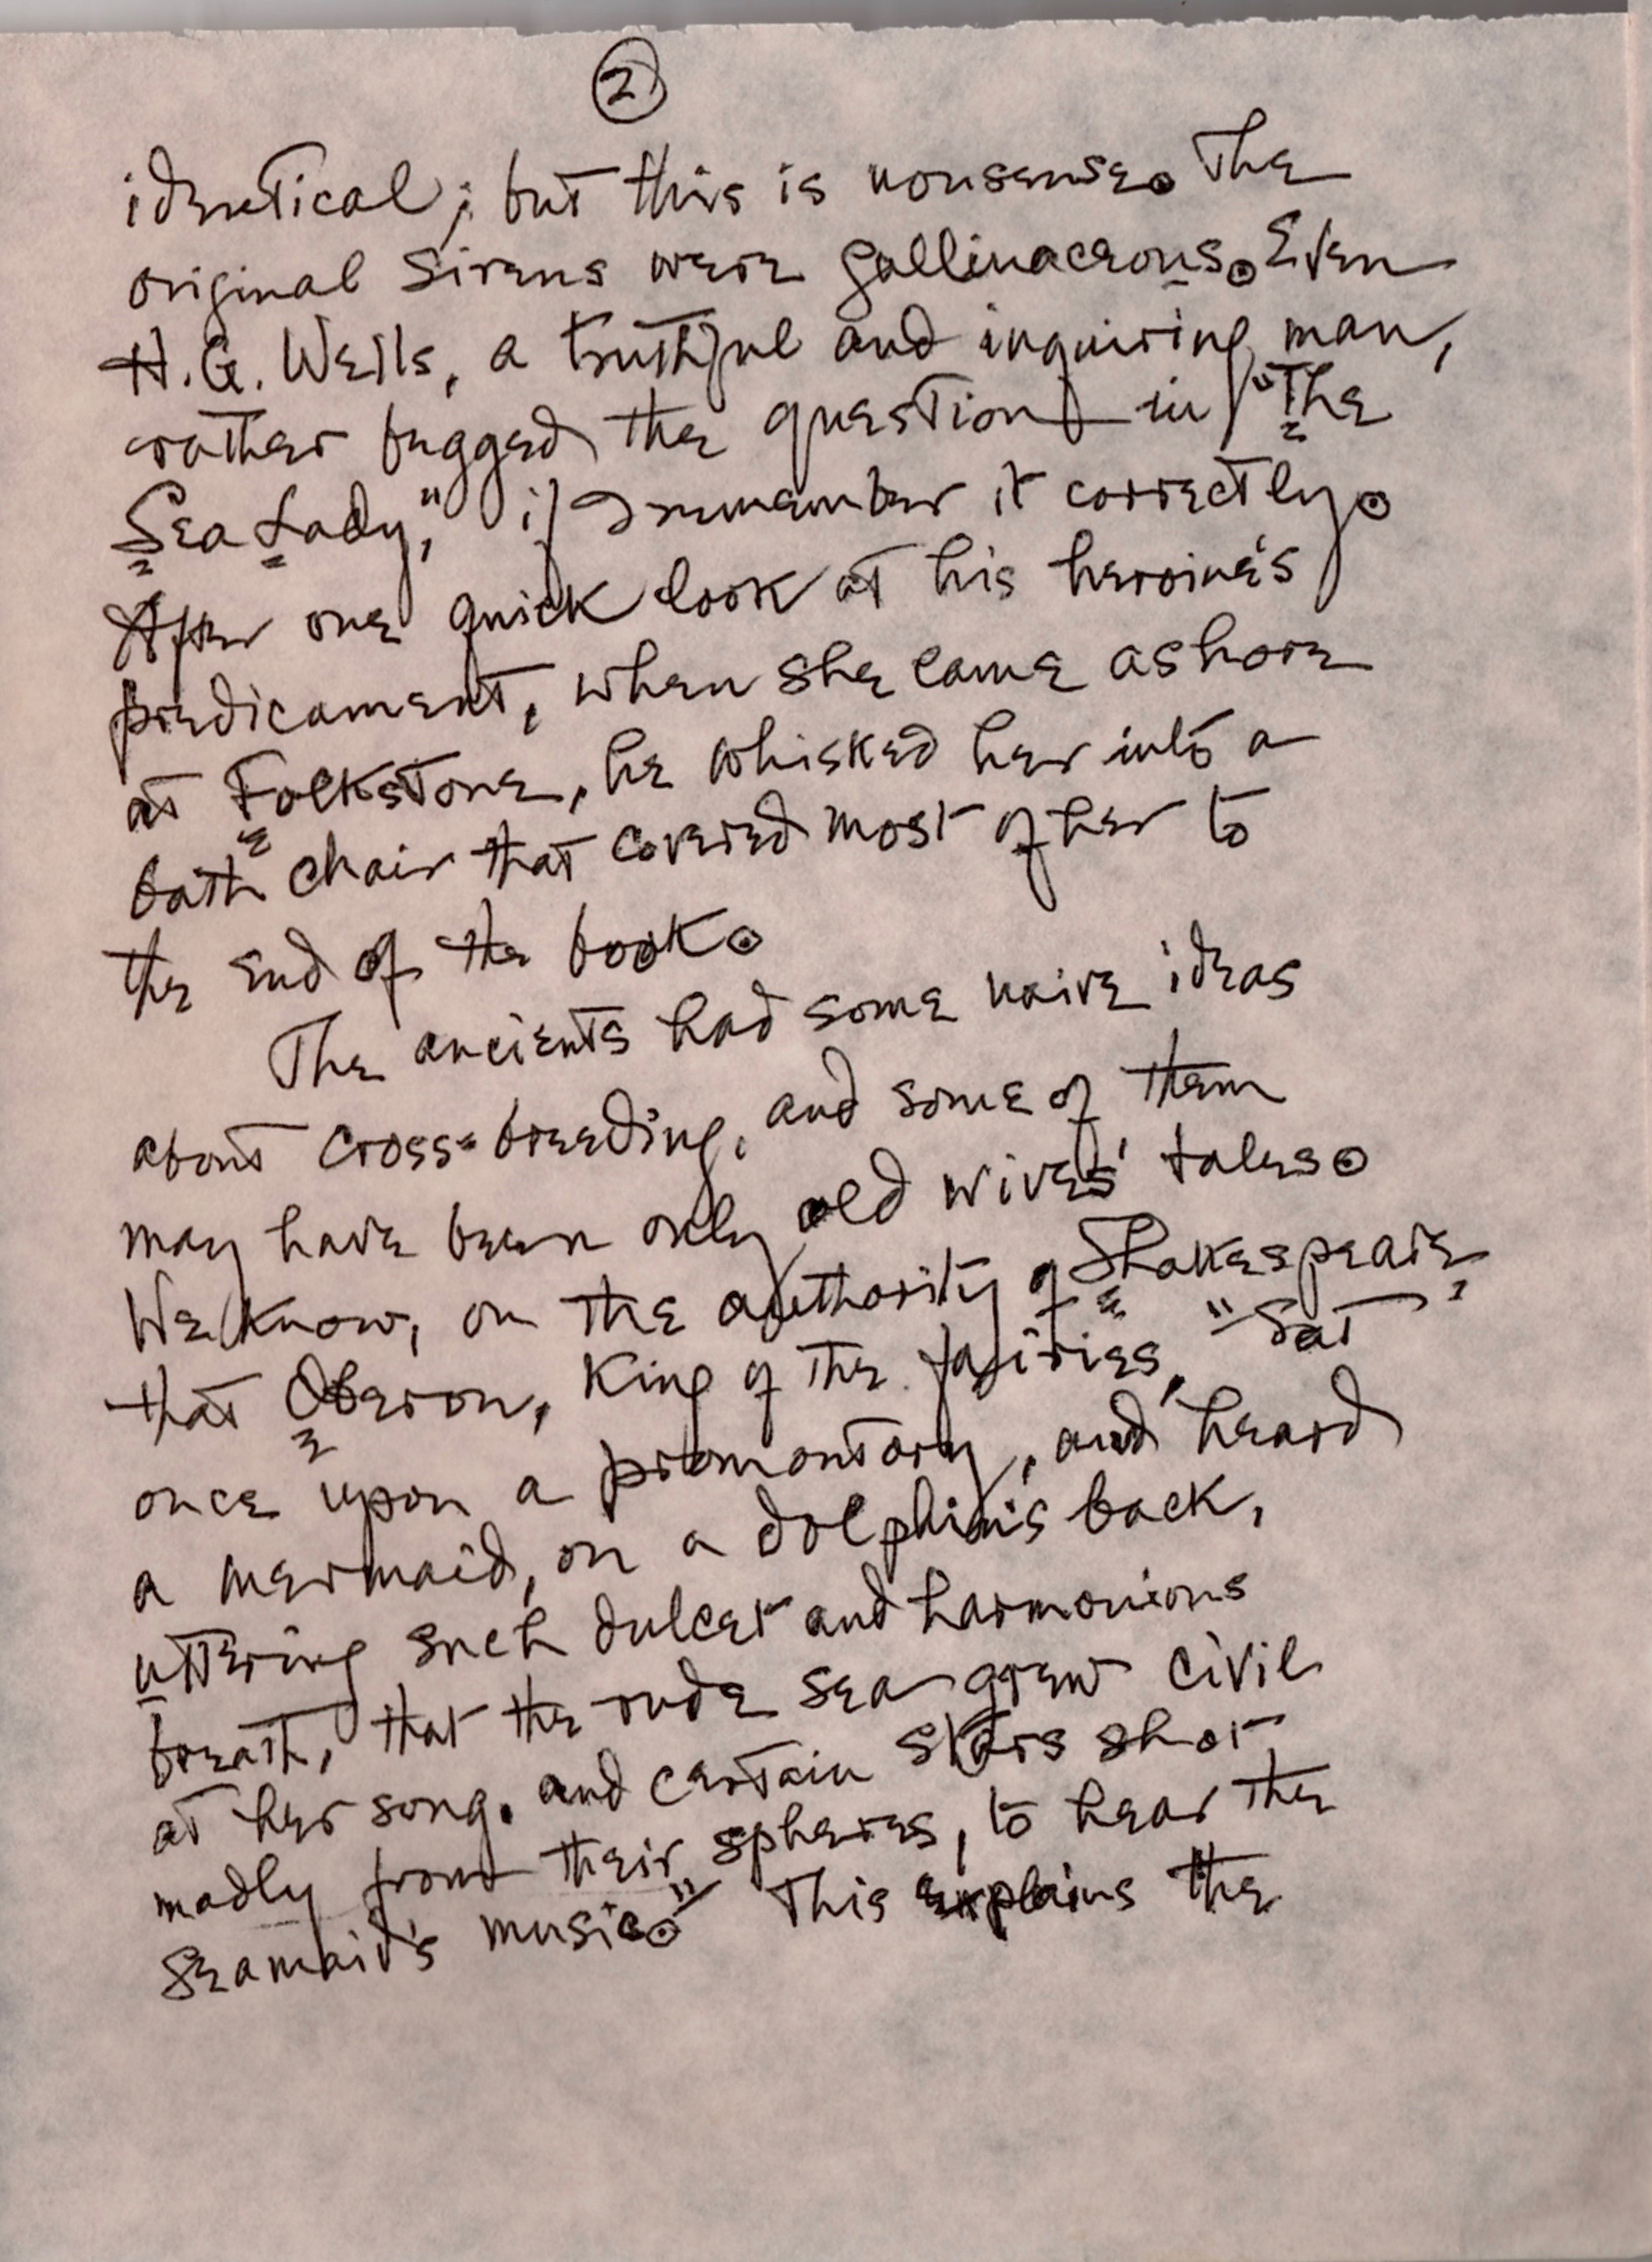 2
identical; but this is nonsense. The
original Sirens were gallinaceous. Even
H. G. Wells, a truthful and inquiring man,
rather fugged the question in "The
Sea Lady," if I remember it correctly.
After one quick look at his heroine's
predicament, when she came ashore
at Folkstone, he whisked her into a
bath chair that covered most of her to
the end of the book.
The ancients had some naive ideas
about cross-breeding, and some of them
may have been only old wives' tales.
We know, on the authority of Shakespeare,
that Oberon, King of the fairies, "sat
once upon a promontory, and heard
a mermaid, on a dolphin's back,
uttering such dulcet and harmonious
breath, that the rude sea grew civil
at her song. and certain stars shot
madly from their spheres, to hear the
seamaid's music." This explains the